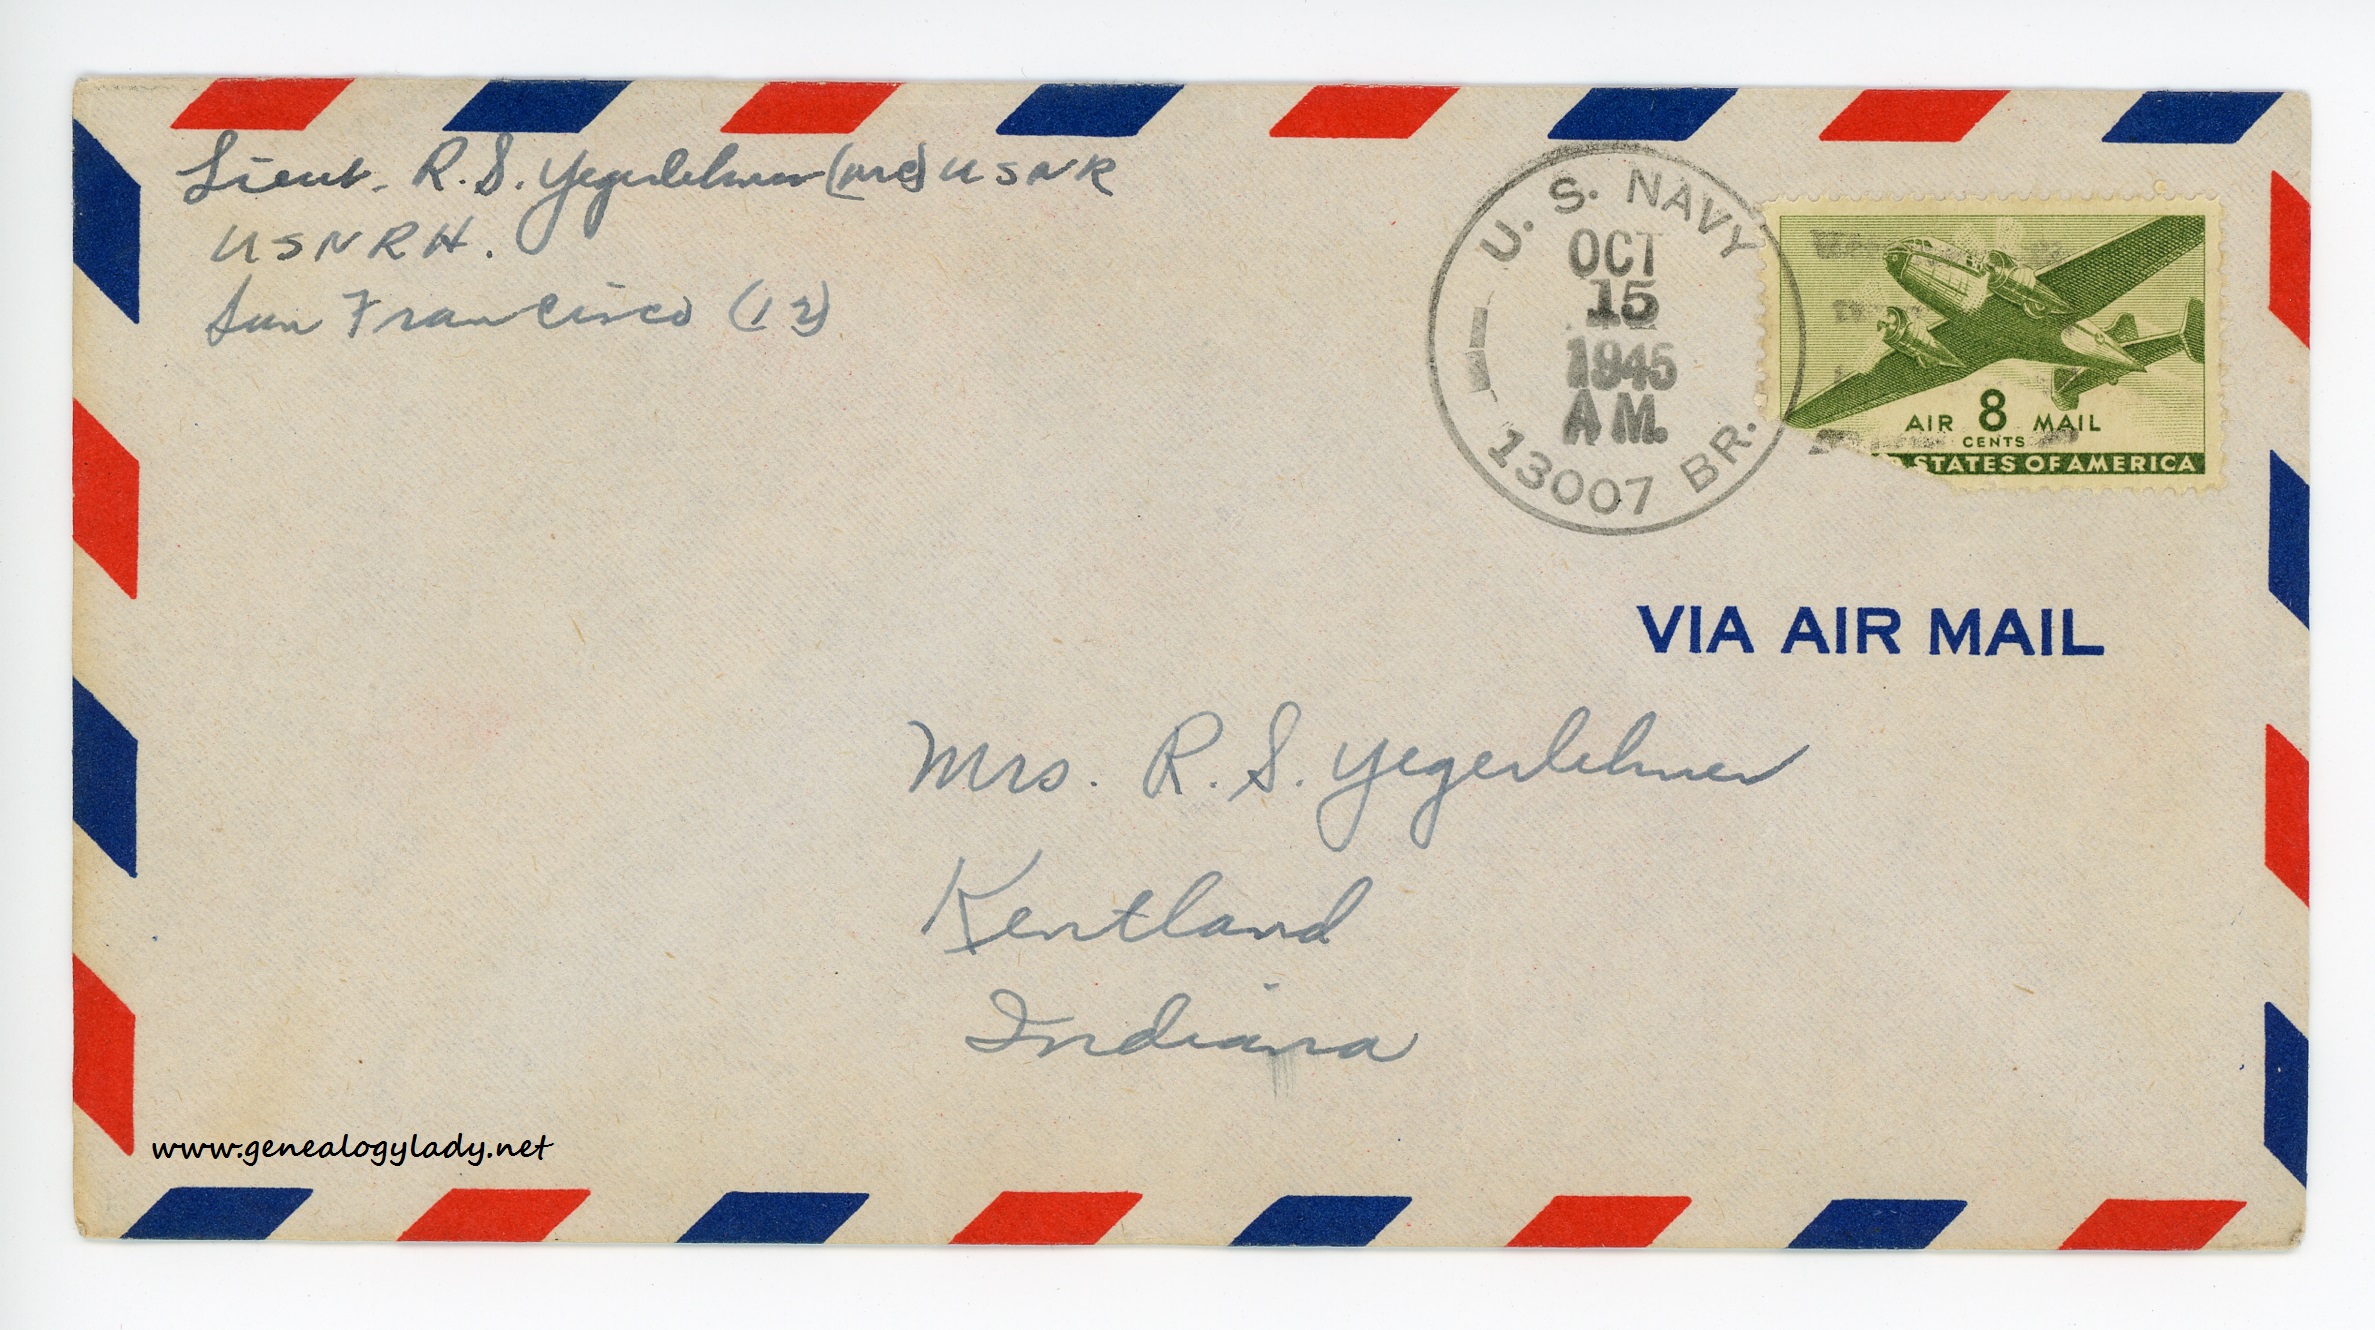 Lieut. R. S. Yegerlehner (MC) USNR
USNRH.
San Francisco (12)
U. S. NAVY
OCT
15
1945
A M.
13007 BR.
AIR 8 MAIL
CENTS
STATES OF AMERICA
VIA AIR MAIL
Mrs. R. S. Yegerlehner
Kentland
Indiana
www.genealogylady.net